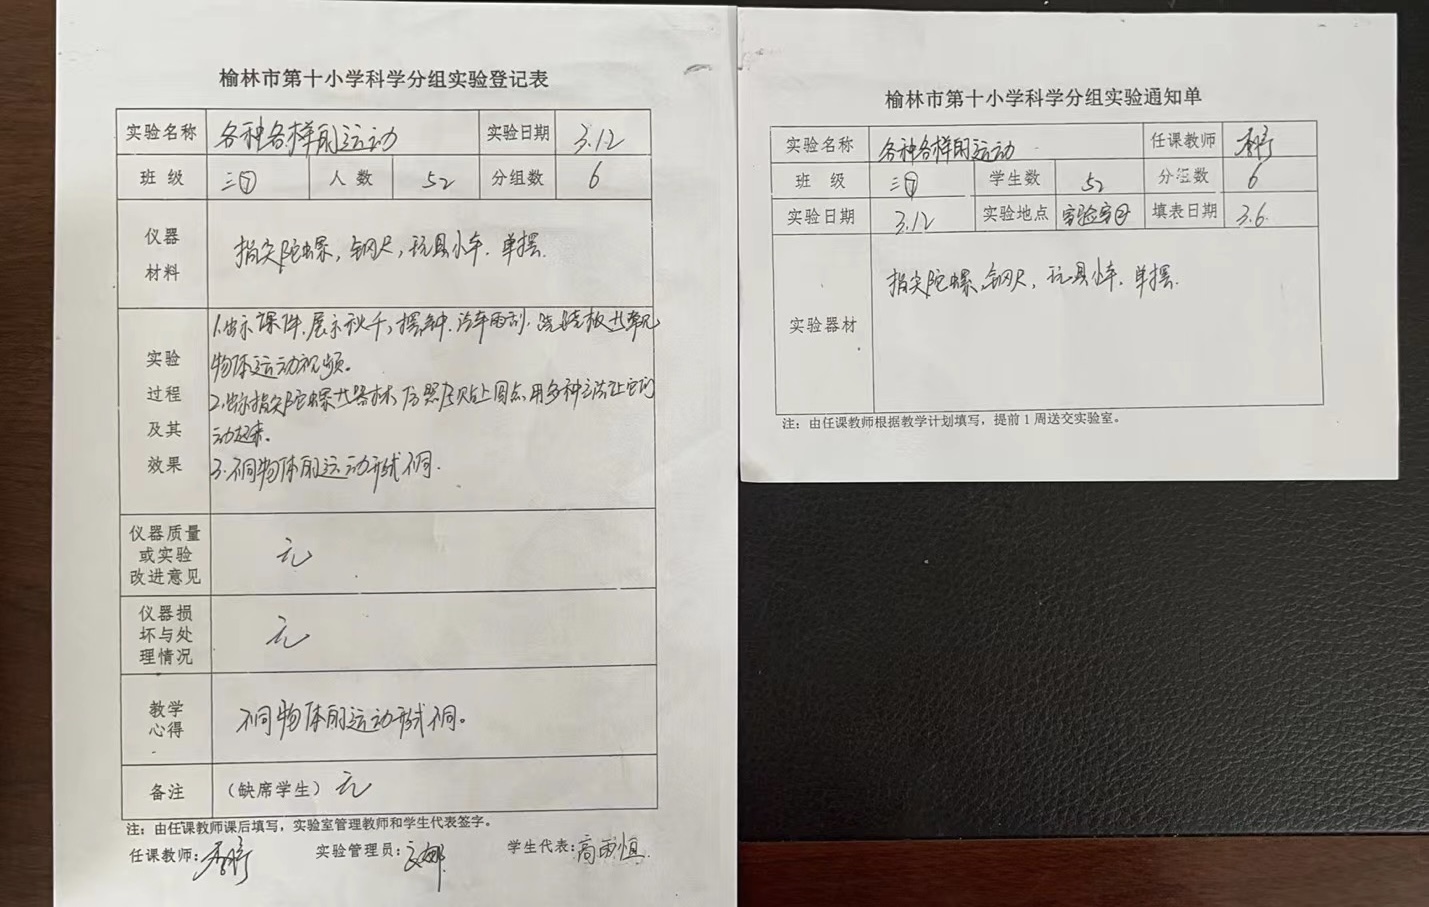 榆林市第十小学科学分组实验登记表
实验名称 各种各样的运动 实验日期 3.12
班 级 三⑦ 人 数 52 分组数 6
仪器
材料
指尖陀螺，钢尺，玩具小车．单摆．
实验
过程
及其
效果
1.出示课件，展示秋千，摆钟．汽车雨刮．跷跷板共常见
物体运动视频。
2.出示指尖陀螺共器材，仿照 贴上圆点，用多种方法让它们
动起来。
3.不同物体的运动形式不同．
仪器质量
或实验
改进意见
无
仪器损
坏与处
理情况
无
教学
心得
不同物体的运动形式不同。
备注 （缺席学生）无
注：由任课教师课后填写，实验室管理教师和学生代表签字。
任课教师： 实验管理员： 学生代表：高雨恒
榆林市第十小学科学分组实验通知单
实验名称 各种各样的运动 任课教师
班 级 三⑦ 学生数 52 分组数 6
实验日期 3.12 实验地点 实验室 填表日期 3.6.
实验器材
指尖陀螺，钢尺，玩具小车．单摆．
注：由任课教师根据教学计划填写，提前1周送交实验室。